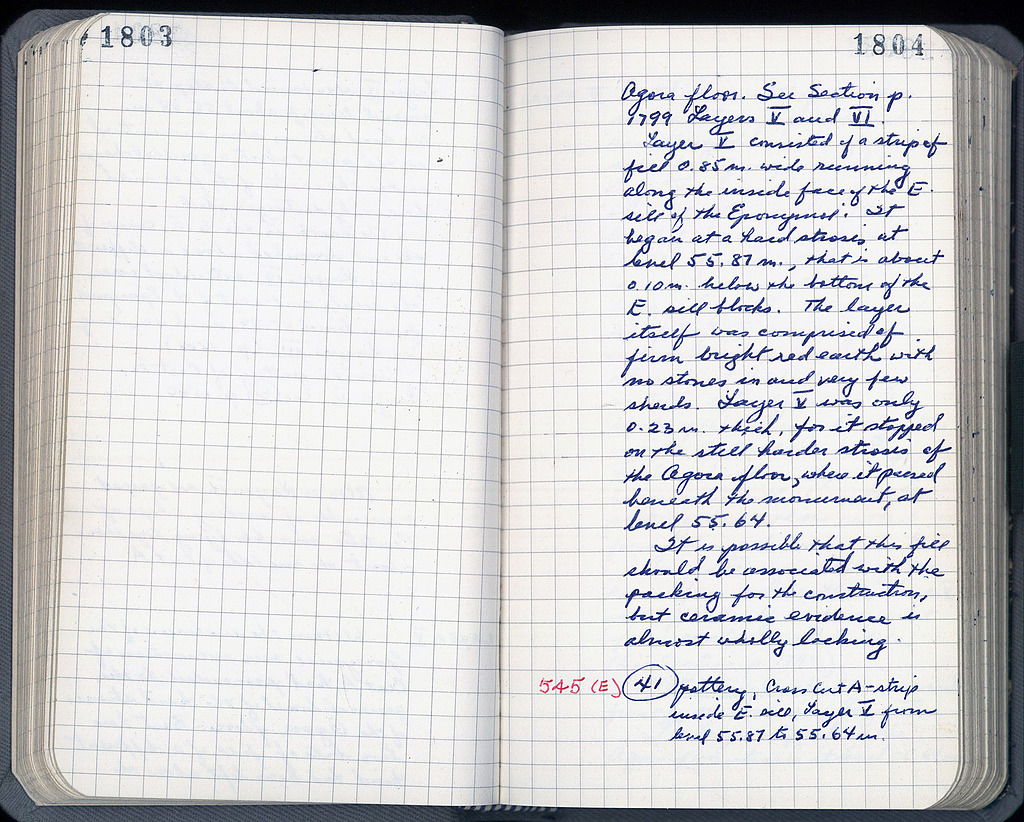 1803
1804
Agora floor. See Section p.
1799 Layers V and VI.
Layer V consisted of a strip of
fill 0.85 m. wide running
along the inside face of the E.
sill of the Eponymoi. It
began at a hard strosis at
level 55.87 m., that is about
0.10 m. below the bottom of the
E. sill blocks. The layer
itself was comprised of
firm bright red earth with
no stones in and very few
sherds. Layer V was only
0.23 m. thick, for it stopped
on the still harder strosis of
the Agora floor, where it passed
beneath the monument, at
level 55.64.
It is possible that this fill
should be associated with the
packing for the construction,
but ceramic evidence is
almost wholly lacking.
545 (E) 41 pottery, Cross Cut A-strip
inside E. sill, Layer V from
level 55.87 to 55.64 m.